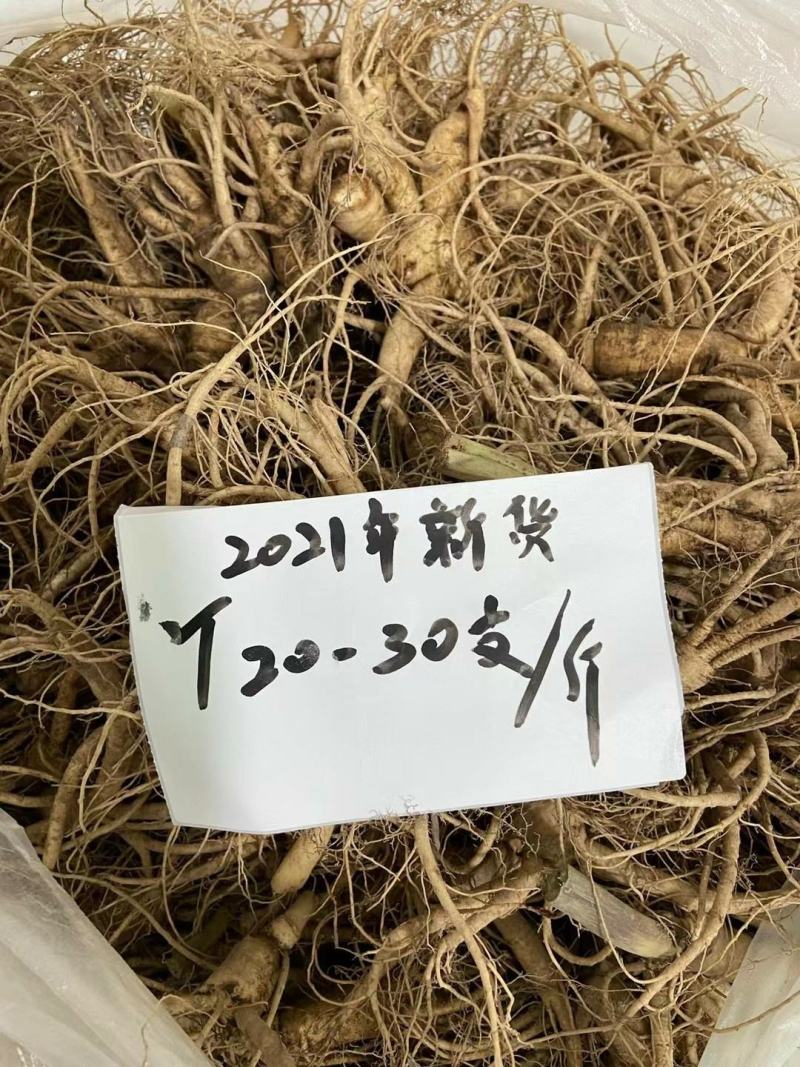 2021年新货
丫20-30支/斤